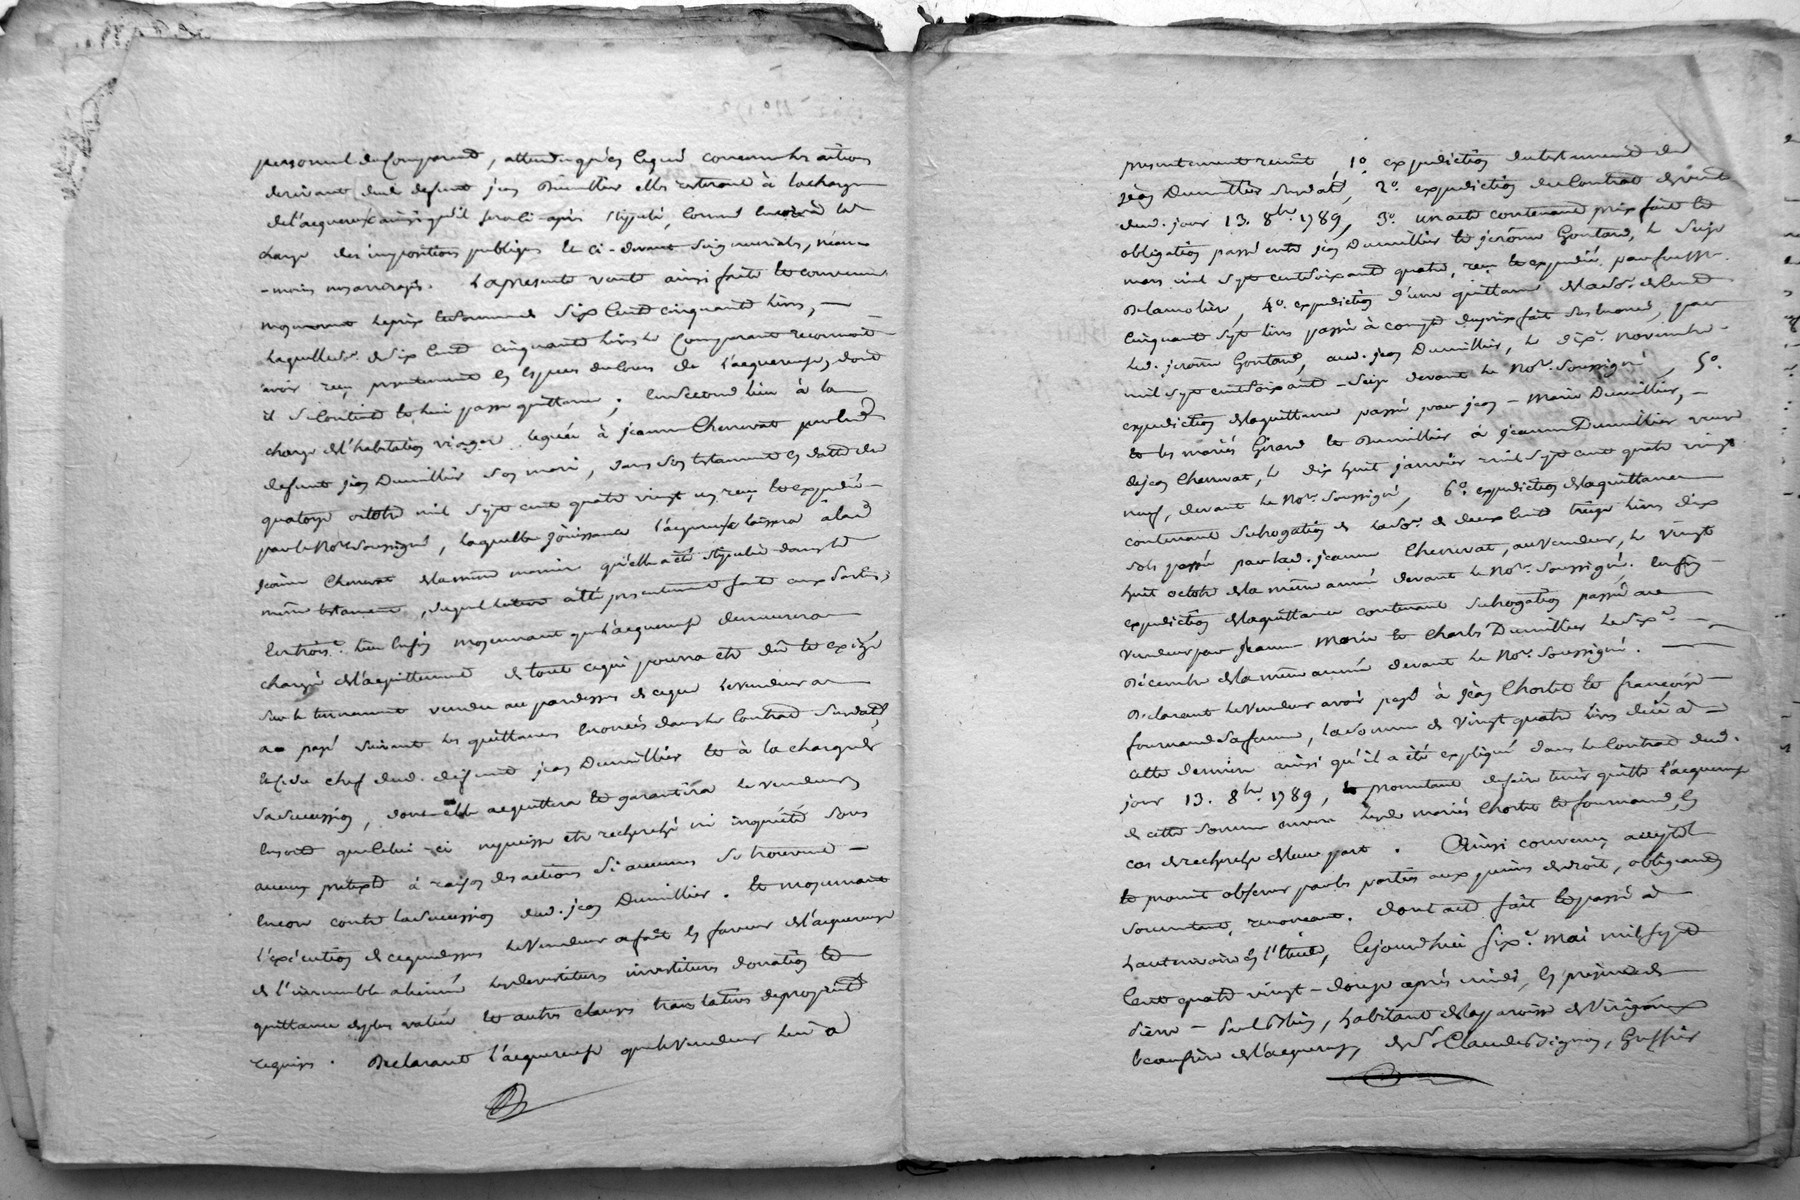 personnel du Comparant, attendu qu'en ce qui concerne les actions
derivant dud. defunt jean Dumillier elles resteront à la charge
de l'acquereuse ainsi qu'il sera ci-après stipulé, comme encore de la
charge des impositions publiques et ci-devant seigneuriales, néan-
-moins nos arrérages. La presente vente ainsi faite et convenue
moyennant le prix et somme de six cent cinquante livres,
laquelle so.e de six cent cinquante livres le Comparant reconnoit
avoir reçu presentement en especes de cours de l'acquereuse, dont
il se contente et lui passe quittance; en second lieu à la
charge de l'habitation viagere leguée à jeanne Chenevat par led.
defunt jean Dumillier son mari, dans son testament en datte du
quatorze octobre mil sept cent quatre vingt un reçu et expedié
par le No.re soussigné, laquelle jouissance l'acquereuse laissera à lad.
jeanne Chenevat de la même maniere qu'elle a été stipulée dans led.
même testament, duquel lecture a été presentement faite aux parties,
en trois.e lieu enfin moyennant que l'acquereuse demeurera
chargée de l'acquittement de tout ce qui pourra etre dû et exigé
sur le tenement vendu au par dessus de ce que le vendeur en
a payé suivant les quittances enoncées dans le Contrat susdaté,
et du chef dud. defunt jean Dumillier et à la charge de
sa succession, dont elle acquittera et garantira le vendeur
ensorte que celui-ci ne puisse etre recherché ni inquiété sous
aucun prétexte à raison des actions si aucunes se trouvent
encore contre la succession dud. jean Dumillier. Et moyennant
l'exécution de ce que dessus le vendeur a fait en faveur de l'acquereuse
de l'immeuble aliené les devestitures investitures donation et
quittance de plus value et autres clauses translatives de proprieté
requises. Declarant l'acquereuse que le vendeur lui a
presentement remit 1.o expedition du testament de
jean Dumillier susdaté, 2.o expedition du Contrat de vente
dud. jour 13. 8.bre 1789, 3.o un acte contenant prix fait et
obligation passé entre jean Dumillier et jerôme Gontard, le seize
mars mil sept cent soixante quatre, reçu et expedié par
Delamolier, 4.o expedition d'une quittance de la so.e de cent
cinquante sept livres passée à compte du prix fait des
led. jerôme Gontard, aud. jean Dumillier, le dix.e novembre
mil sept cent soixante-seize devant le No.re soussigné, 5.o
expedition de la quittance passée par jean-Marie Dumillier,
et les mariés Girard et Dumillier à jeanne Dumillier veuve
de jean Chenevat, le dix huit janvier mil sept cent quatre vingt
neuf, devant le No.re soussigné, 6.o expedition de la quittance
contenant subrogation de la so.e de deux cent treize livres dix
sols passée par lad. jeanne Chenevat, au vendeur, le vingt
huit octobre de la même année devant le No.re soussigné. enfin
expedition de la quittance contenant subrogation passée au
vendeur par Jeanne Marie et Charles Dumillier le six.e
Décembre de la même année devant le No.re soussigné.
Declarant le vendeur avoir payé à jean Chorlet et françoise
fournand sa femme, la somme de vingt quatre livres düe à
cette derniere ainsi qu'il a été expliqué dans le Contrat dud.
jour 13. 8.bre 1789, et promettant de faire tenir quitte l'acquereuse
de cette somme envers lesd. mariés Chorlet et fournand, en
cas de recherche de leur part. Ainsi convenu, accepté
et promit observer par les parties aux peines de droit, obligeant
soumettant, renonceant. dont acte fait et passé à
hauterivoire en l'étude, cejourd'hui six.e mai mil sept
cent quatre vingt-douze après midi, en presence de
pierre habitant de la paroisse de Virigneux
beaufrere de l'acquereuse, de S.r Claude Bignon, Greffier